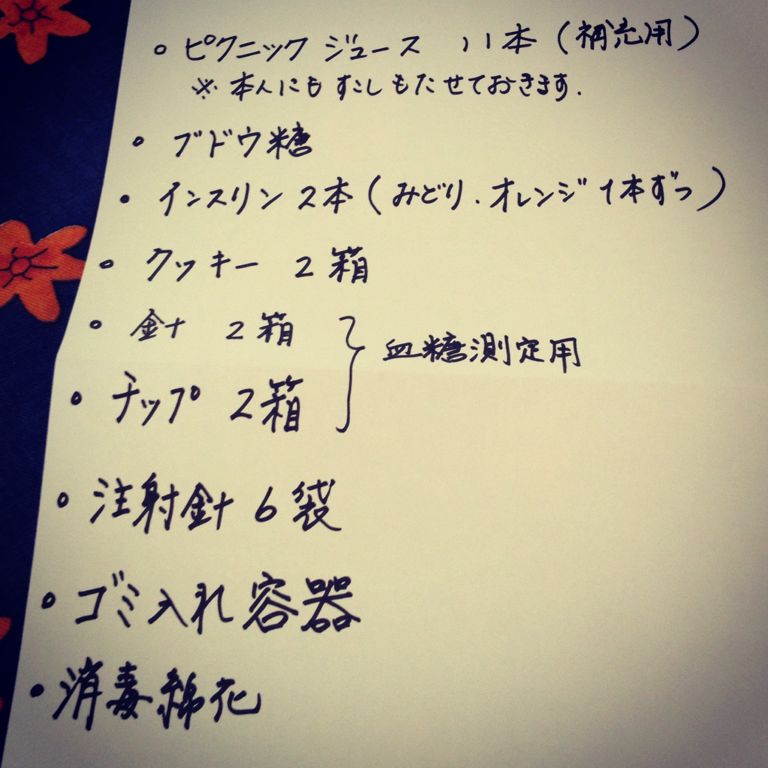 。ピクニックジュース 11本(補充用)
※本人にもすこしもたせておきます.
・ブドウ糖
・インスリン 2本(みどり.オレンジ1本ずつ)
・クッキー 2箱
・針 2箱
・チップ 2箱 } 血糖測定用
・注射針 6袋
・ゴミ入れ容器
・消毒綿花